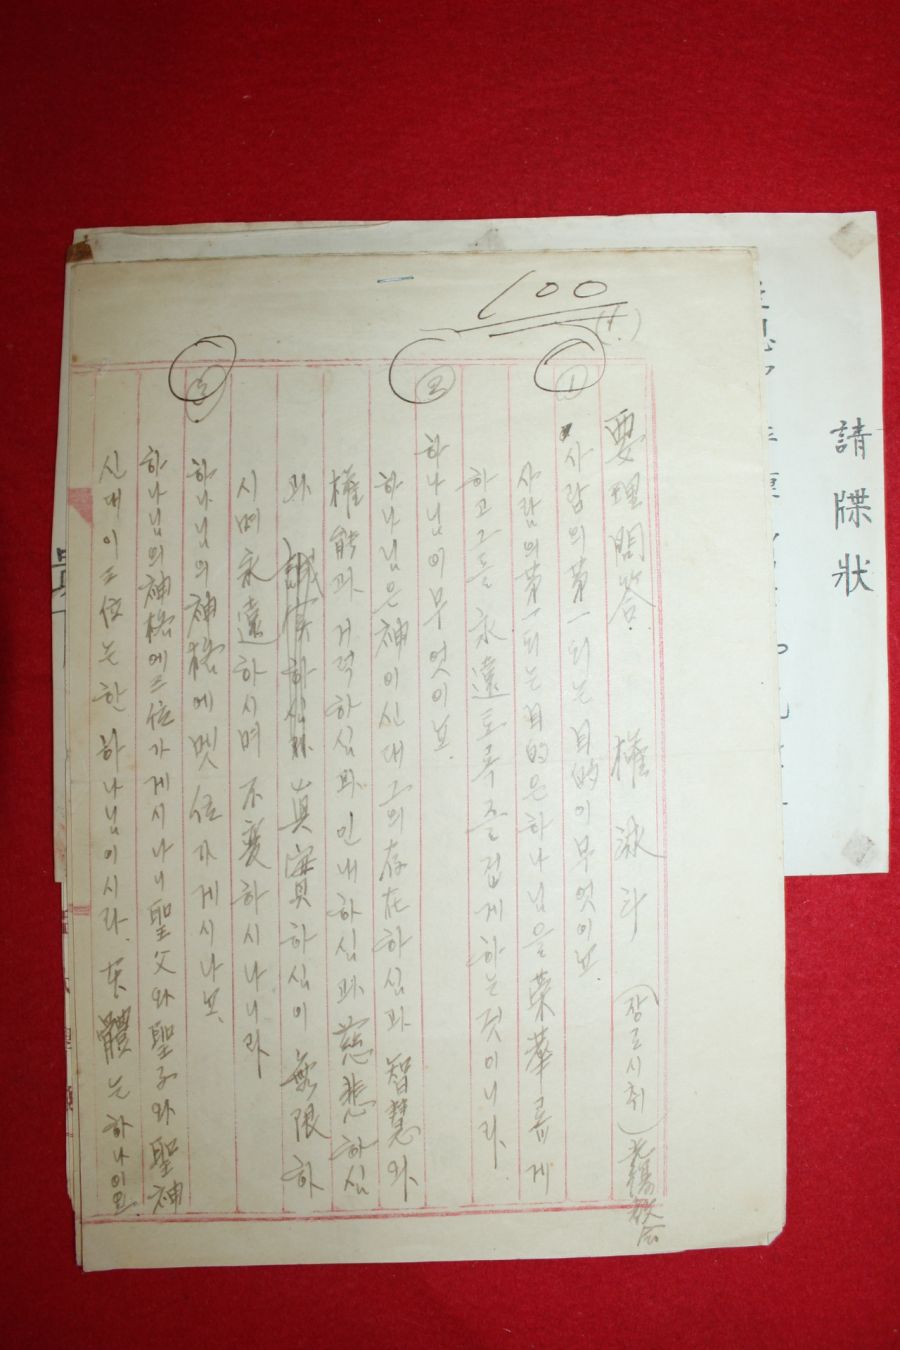 100
(1.)
要理問答. 權 泳 斗 (장로시취)
① 사람의 第一되는 目的이 무엇이뇨.
사람의 第一되는 目的은 하나님을 榮華롭게
하고 그를 永遠토록 즐겁게 하는 것이니라.
② 하나님이 무엇이뇨.
하나님은 神이신대 그의 存在하심과 智慧와
權能과 거룩하심과 인내하심과 慈悲하심
과 誠實하심과 眞實하심이 無限하
시며 永遠하시며 不變하시나니라
③ 하나님의 神格에 몟 位가 게시나뇨.
하나님의 神格에 三位가 게시나니 聖父와 聖子와 聖神
신대 이 三位는 한 하나님이시라. 本體는 하나이요
請牒狀